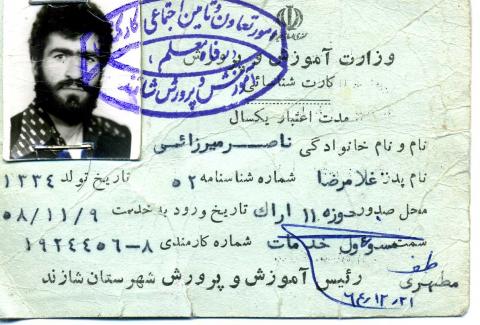 امور تعاون و تأمین اجتماعی کارکنان
رفاه معلم
آموزش و پرورش شازند
وزارت آموزش و پرورش
کارت شناسائی
مدت اعتبار یکسال
نام و نام خانوادگی ناصر میرزائی
نام پدر غلامرضا شماره شناسنامه ۵۲ تاریخ تولد ۱۳۳۴
محل صدور حوزه ۱۱ اراك تاریخ ورود به خدمت ۵۸/۱۱/۹
سمت مسئول خدمات شماره کارمندی ۸-۱۹۲۴۴۵۶
رئیس آموزش و پرورش شهرستان شازند
مطهری
۶۴/۱۲/۲۱